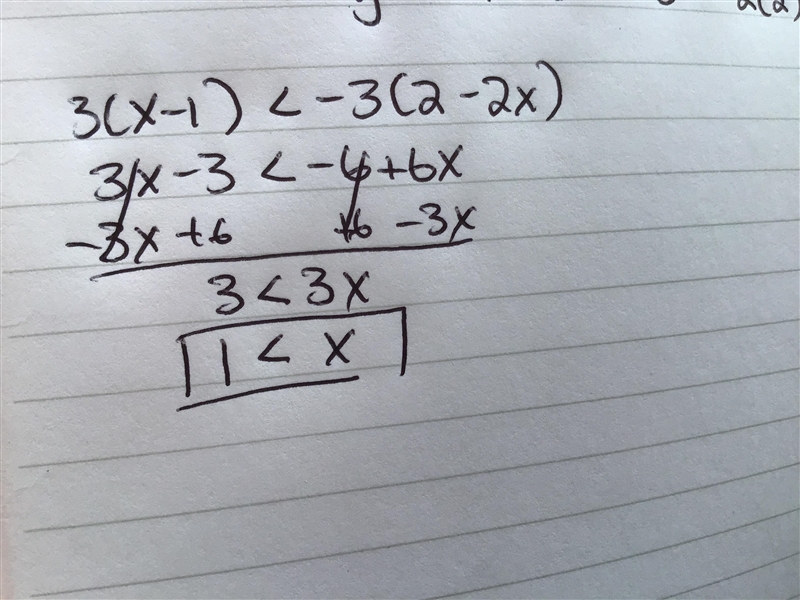 2(2)
3(x-1) < -3(2-2x)
3x-3 < -6+6x
-3x+6 +6-3x
3 < 3x
1 < x